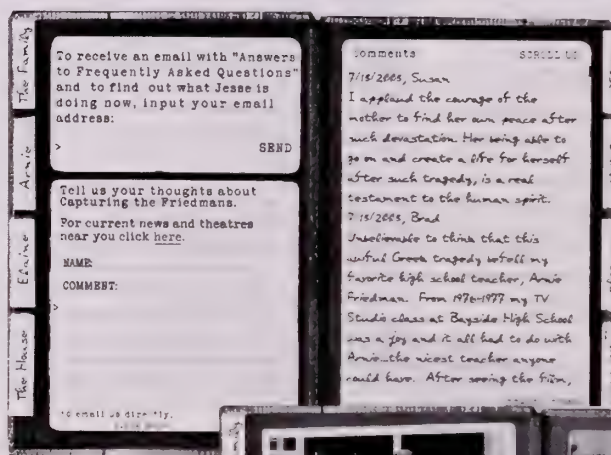 The Family
Arnie
Elaine
The House
To receive an email with "Answers
to Frequently Asked Questions"
and to find out what Jesse is
doing now, input your email
address:
>
SEND
Tell us your thoughts about
Capturing the Friedmans.
For current news and theatres
near you click here.
NAME:
COMMENT:
>
to email us directly,
Comments
SCROLL UP
7/15/2003, Susan
I applaud the courage of the
mother to find her own peace after
such devastation. Her being able to
go on and create a life for herself
after such tragedy, is a real
testament to the human spirit.
7/15/2003, Brad
Unbelievable to think that this
awful Greek tragedy befell my
favorite high school teacher, Arnie
Friedman. From 1976-1977 my TV
Studio class at Bayside High School
was a joy and it all had to do with
Arnie...the nicest teacher anyone
could have. After seeing the film,